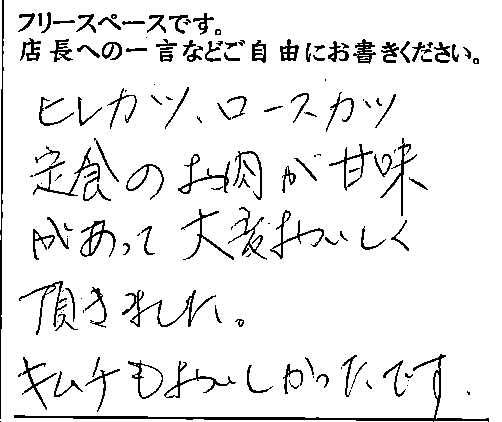 フリースペースです。
店長への一言などご自由にお書きください。
ヒレカツ、ロースカツ
定食のお肉が甘味
があって大変おいしく
頂きました。
キムチもおいしかったです.